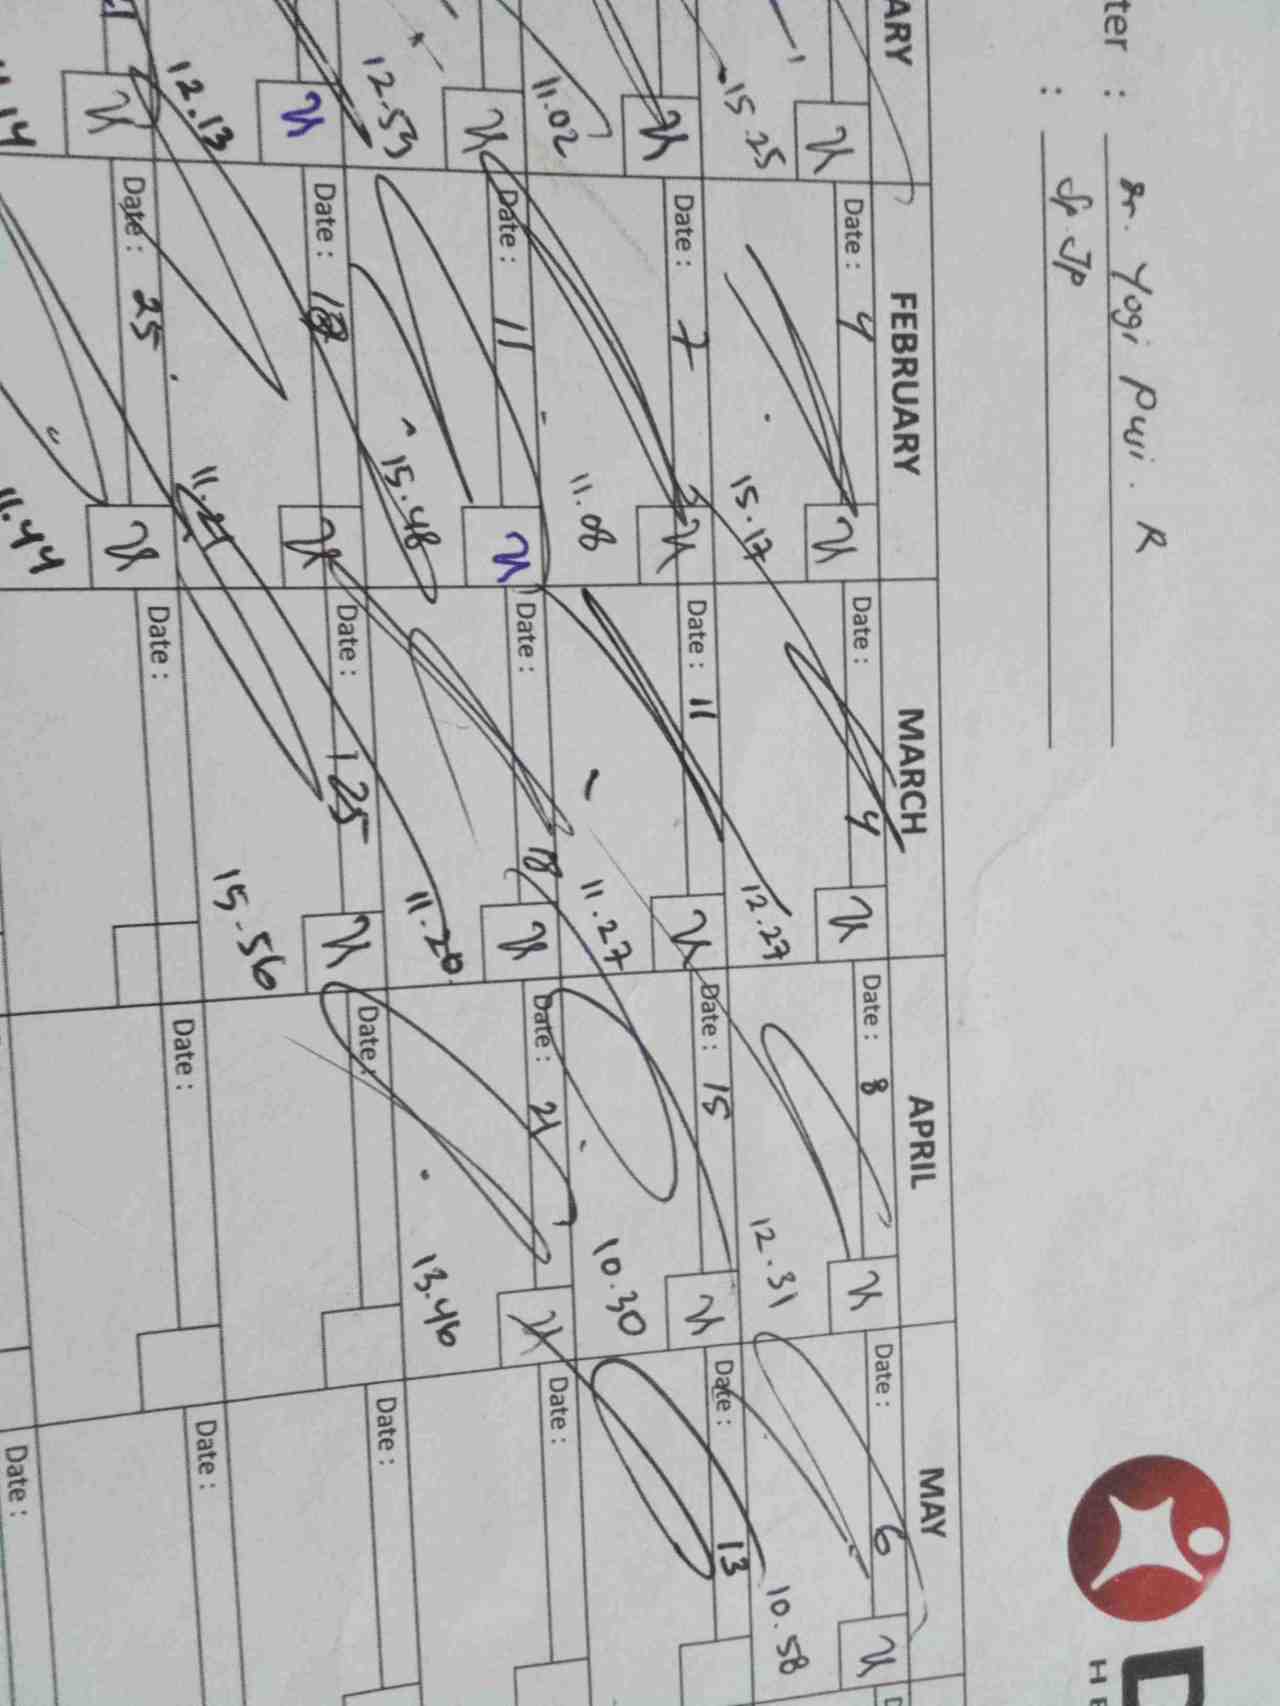 ter : dr. Yogi Puji. R
: Sp. Jp
ARY FEBRUARY MARCH APRIL MAY
Date : 4 Date : 4 Date : 8 Date : 6
15.25 15.17 12.27 12.31 10.58
Date : 7 Date : 11 Date : 15 Date : 13
11.02 11.08 11.27 10.30
Date : 11 Date : 18 Date : 21 Date :
12.53 15.48 11.20 13.46
Date : 18 Date : 25 Date : Date :
12.13 11.21 15.56
Date : 25 Date : Date : Date :
.14 11.44
Date :
D
HE